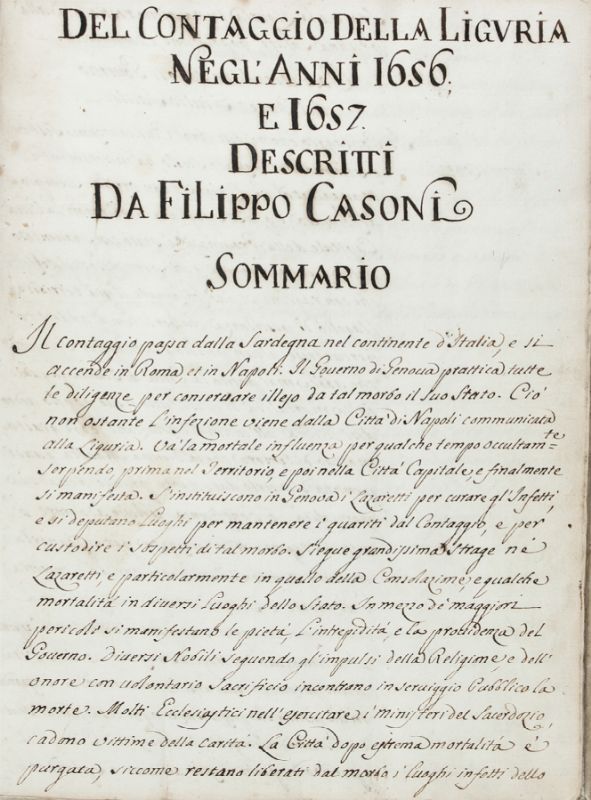 DEL CONTAGGIO DELLA LIGVRIA
NEGL'ANNI 1656,
E 1657.
DESCRITTI
DA FILIPPO CASONI
SOMMARIO
Il contaggio passa dalla Sardegna nel continente d'Italia, e si
accende in Roma, et in Napoli. Il Governo di Genova prattica tutte
le diligenze per conservare illeso da tal morbo il suo Stato. Ciò
non ostante l'infezione viene dalla Città di Napoli communicata
alla Liguria. Và la mortale influenza per qualche tempo occultam.te
serpendo, prima nel Territorio, e poi nella Città Capitale, e finalmente
si manifesta. S'instituiscono in Genova i Lazaretti per curare gl'Infetti,
e si deputano Luoghi per mantenere i quariti dal Contaggio, e per
custodire i sospetti di tal morbo. Siegue grandissima strage nè
Lazaretti, e particolarmente in quello della Consolazione, e qualche
mortalità in diversi Luoghi dello Stato. In mezo de maggiori
pericoli si manifestano le pietà, l'intrepidità, e la providenza del
Governo. Diversi Nobili seguendo gl'impulsi della Religione, e dell'
onore con volontario sacrificio incontrano in serviggio Pubblico la
morte. Molti Ecclesiastici nell'esercitare i ministeri del Sacerdozio,
cadono vittime della carità. La Città dopo estrema mortalità è
purgata, siccome restano liberati dal morbo i Luoghi infetti dello